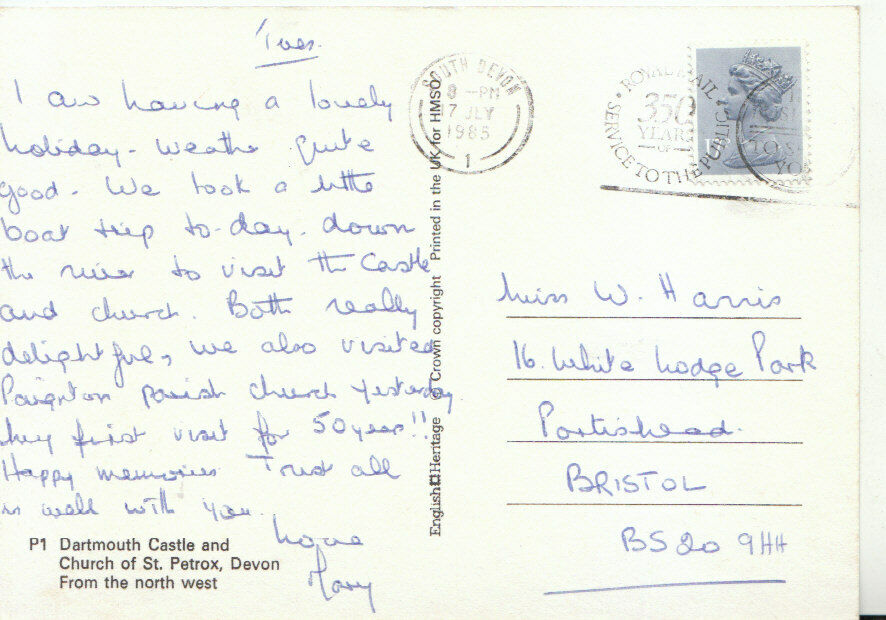 Tues.
I am having a lovely
holiday - weather quite
good - We took a little
boat trip to-day. down
the river to visit the Castle
and church. Both really
delightful, we also visited
Paignton parish church yesterday
my first visit for 50 years!!
Happy memories Trust all
is well with you.
Love
Mary
P1 Dartmouth Castle and
Church of St. Petrox, Devon
From the north west
English Heritage © Crown copyright Printed in the UK for HMSO
SOUTH DEVON
8 - PM
7 JLY
1985
1
ROYAL MAIL
350
YEARS
OF
SERVICE TO THE PUBLIC
Miss W. Harris
16. White Lodge Park
Portishead.
BRISTOL
BS20 9HH